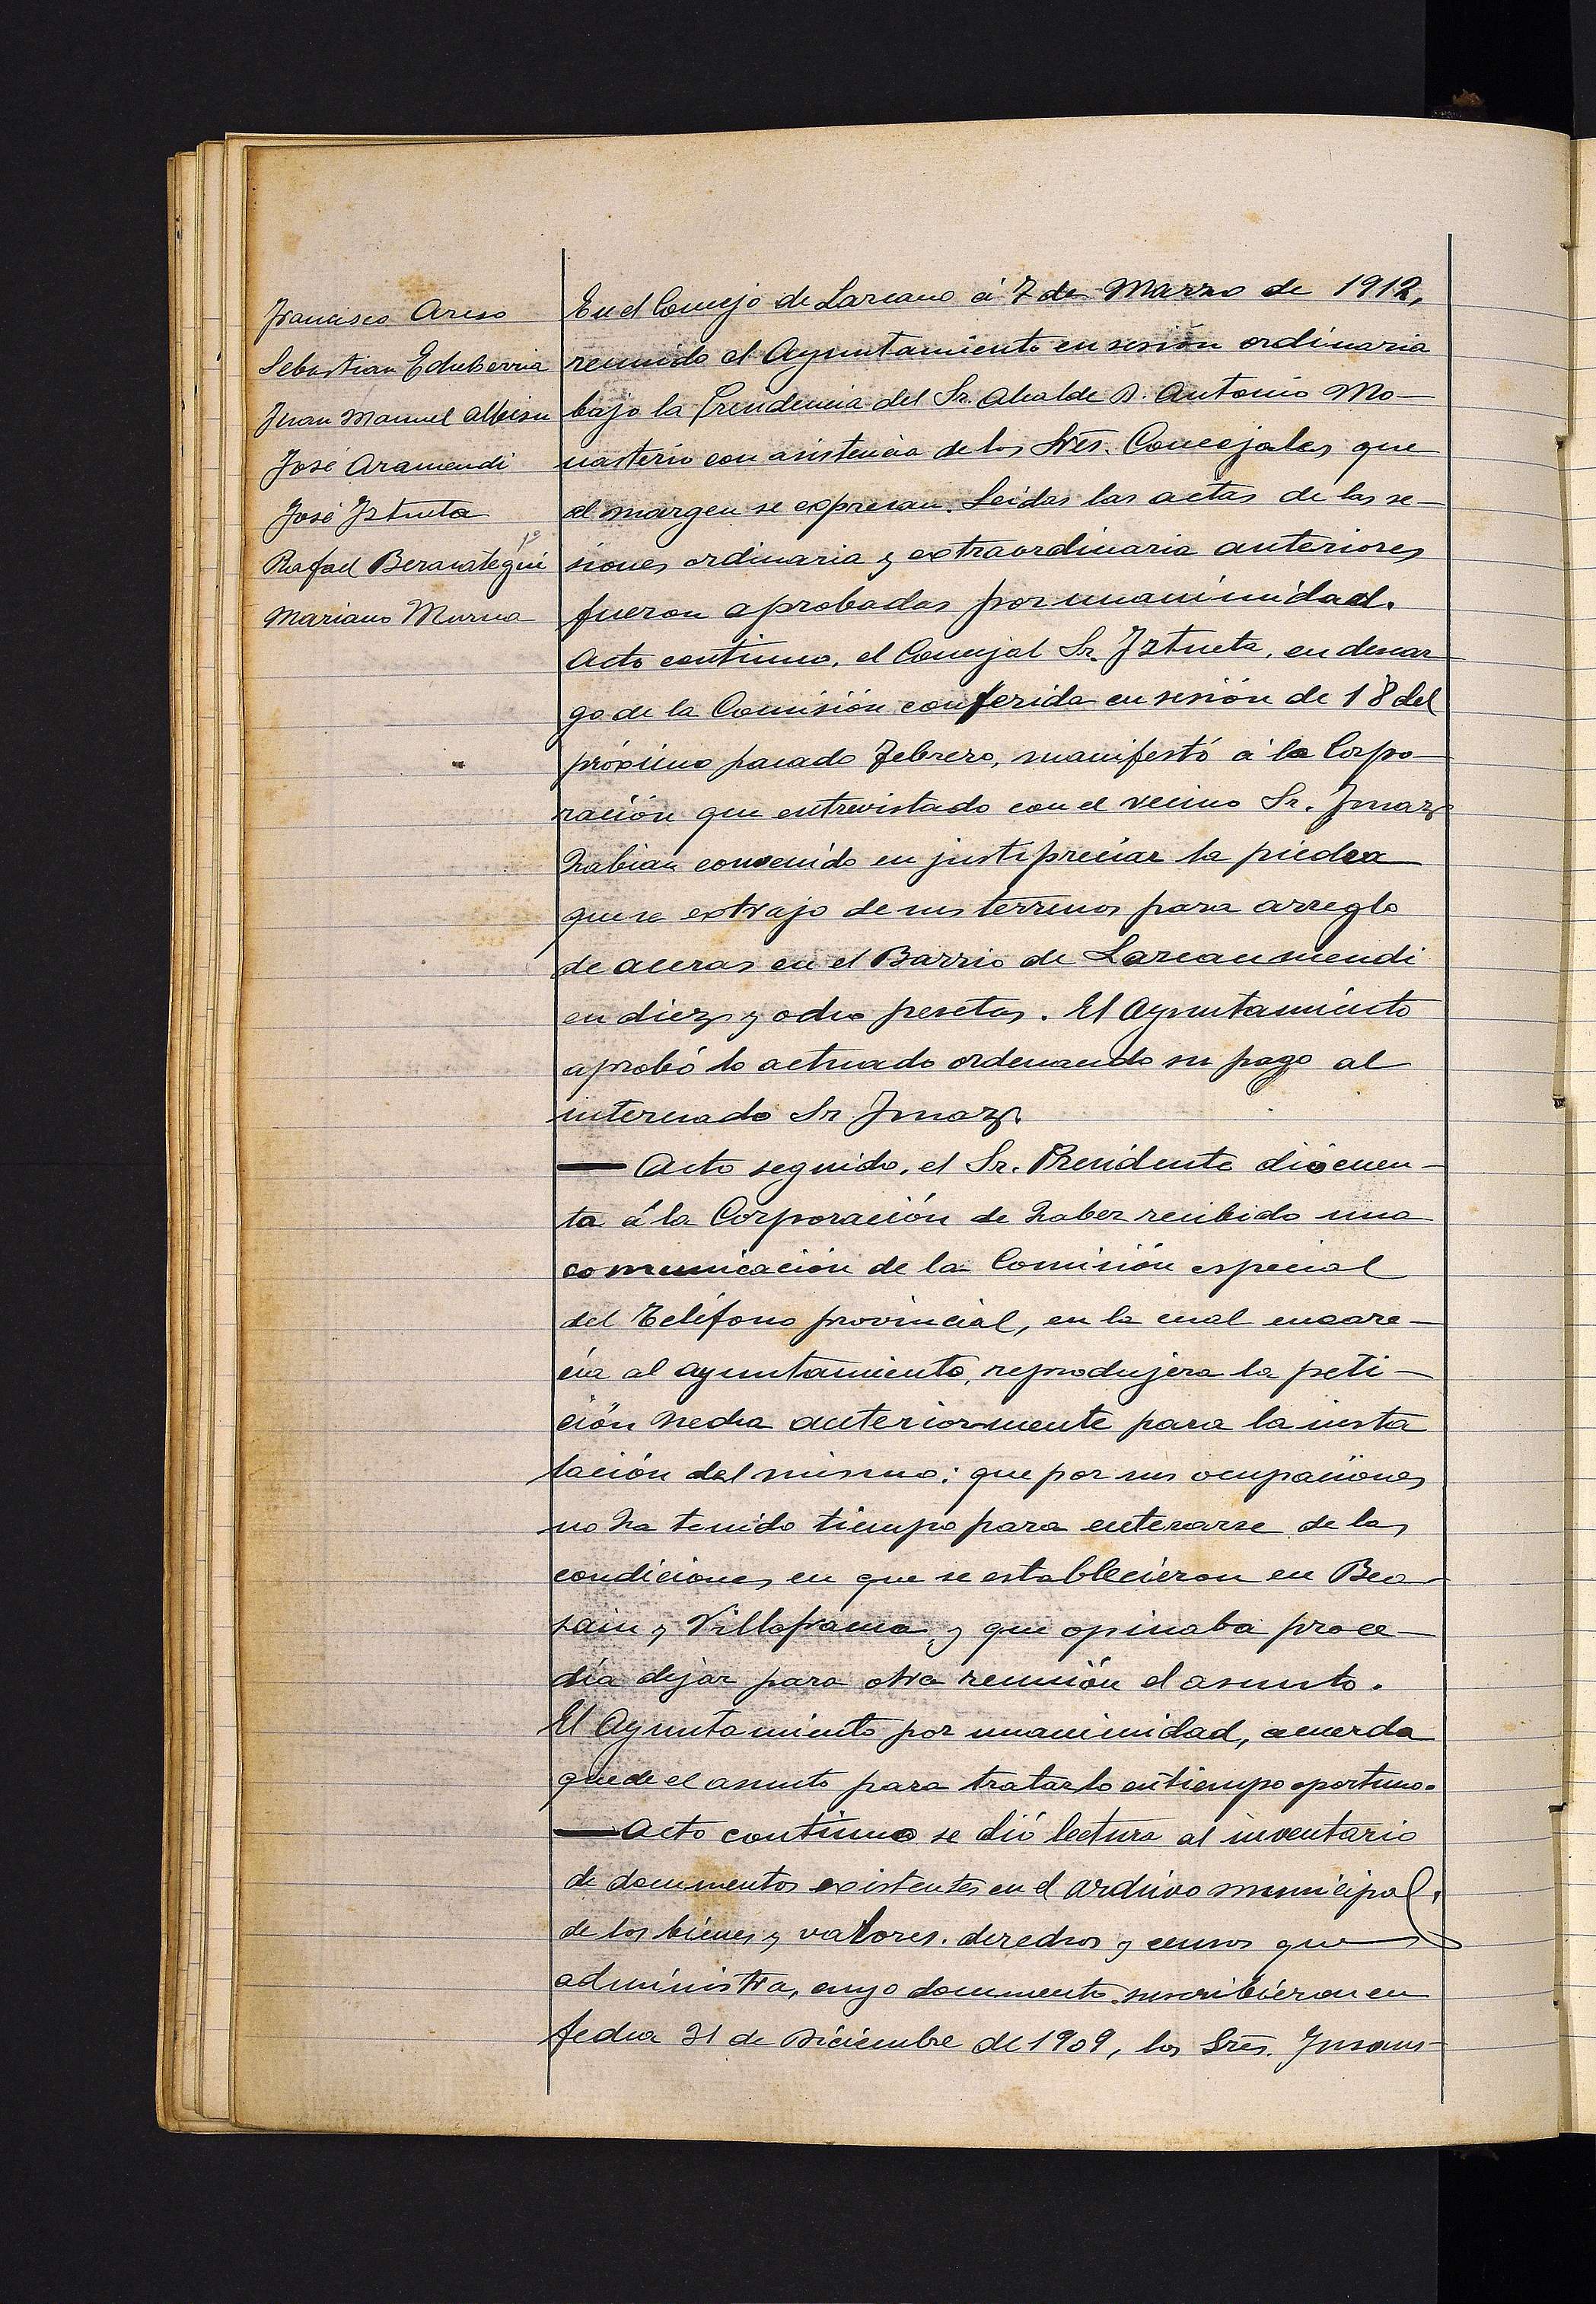 Francisco Areso
Sebastian Echeberria
Juan Manuel Albisu
José Aramendi
José Iztueta
Rafael Berasategui
Mariano Murua
En el Concejo de Lazcano á 7 de Marzo de 1912,
reunido el Ayuntamiento en sesión ordinaria
bajo la Presidencia del Sr. Alcalde D. Antonio Mo-
nasterio con asistencia de los Sres. Concejales que
al margen se expresan. Leidas las actas de las se-
siones ordinaria y extraordinaria anteriores
fueron aprobadas por unanimidad.
Acto continuo, el Concejal Sr. Iztueta, en descar
go de la Comisión conferida en sesión de 18 del
próximo pasado Febrero, manifestó á la Corpo-
ración que entrevistado con el vecino Sr. Imaz
habian convenido en justipreciar la piedra
que se extrajo de sus terrenos para arreglo
de aceras en el Barrio de Lazcaumendi
en diez y ocho pesetas. El Ayuntamiento
aprobó lo actuado ordenando su pago al
interesado Sr. Imaz.
— Acto seguido, el Sr. Presidente dió cuen-
ta á la Corporación de haber recibido una
comunicación de la Comisión especial
del Teléfono provincial, en la cual encare-
cia al ayuntamiento, reprodujera la peti-
ción hecha anteriormente para la insta
lación del mismo: que por sus ocupaciones
no ha tenido tiempo para enterarse de las
condiciones en que se establecieron en Bea
sain y Villafranca y que opinaba proce-
día dejar para otra reunión el asunto.
El Ayuntamiento por unanimidad, acuerda
quede el asunto para tratarlo en tiempo oportuno.
— Acto continuo se dió lectura al inventario
de documentos existentes en el archivo municipal,
de los bienes y valores, derechos y censos que
administra, cuyo documento suscribieron en
fecha 31 de Diciembre de 1909, los Sres.